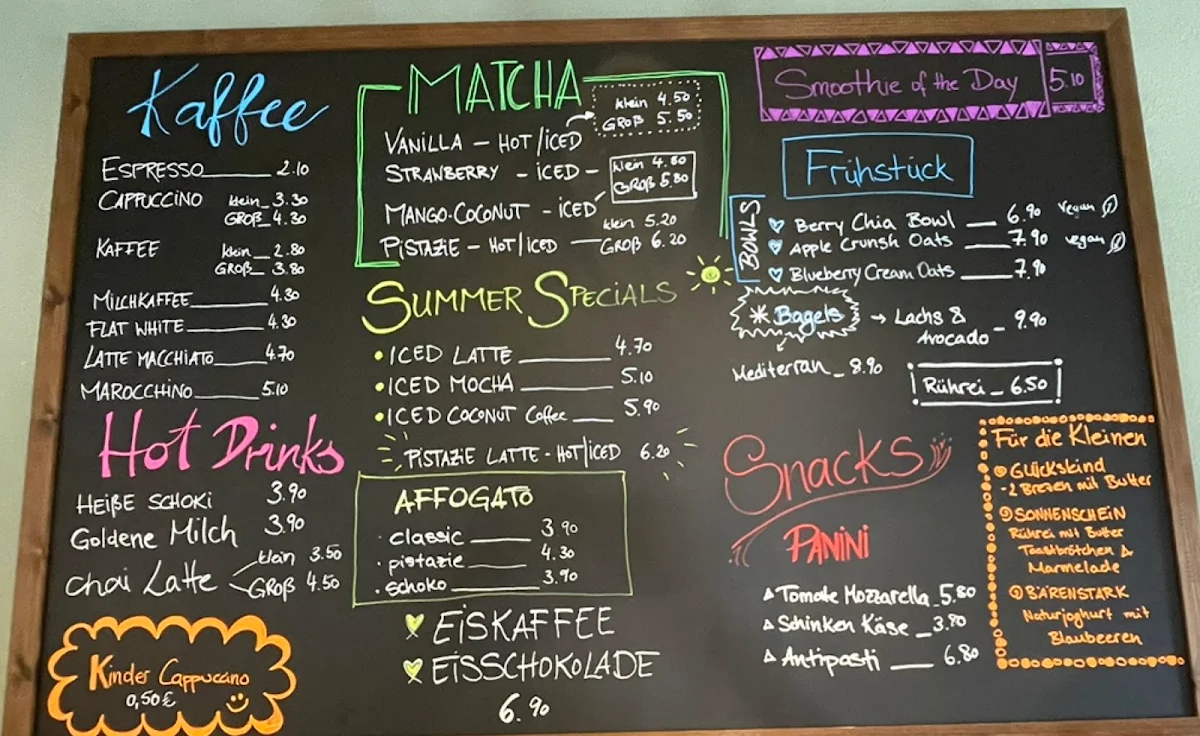 Kaffee
ESPRESSO 2.10
CAPPUCCINO klein 3.30
GROß 4.30
KAFFEE klein 2.80
GROß 3.80
MILCHKAFFEE 4.30
FLAT WHITE 4.30
LATTE MACCHIATO 4.70
MAROCCHINO 5.10
Hot Drinks
HEIßE SCHOKI 3.90
Goldene Milch 3.90
Chai Latte klein 3.50
GROß 4.50
Kinder Cappucano
0,50€
MATCHA
klein 4.50
GROß 5.50
VANILLA - HOT/ICED
STRAWBERRY - ICED - klein 4.80
GROß 5.80
MANGO-COCONUT - ICED
klein 5.20
PISTAZIE - HOT/ICED GROß 6.20
SUMMER SPECIALS
ICED LATTE 4.70
ICED MOCHA 5.10
ICED COCONUT Coffee 5.90
PISTAZIE LATTE - HOT/ICED 6.20
AFFOGATO
classic 3.90
pistazie 4.30
schoko 3.90
EISKAFFEE
EISSCHOKOLADE
6.90
Smoothie of the Day 5.10
Frühstück
BOWLS
Berry Chia Bowl 6.90 vegan
Apple Crunsh Oats 7.90 vegan
Blueberry Cream Oats 7.90
* Bagels → Lachs &
Avocado - 9.90
Mediterran - 8.90
Rührei - 6.50
Snacks
PANINI
Tomate Mozzarella 5.80
Schinken Käse 3.80
Antipasti 6.80
Für die Kleinen
GLÜCKSKIND
- 2 Brezen mit Butter
SONNENSCHEIN
Rührei mit Butter
Toastbrötchen &
Marmelade
BÄRENSTARK
Naturjoghurt mit
Blaubeeren